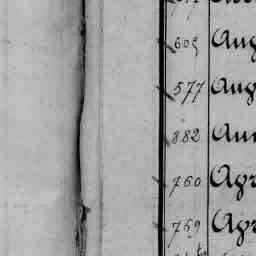 605 Aug
577 Aug
882 Aun
760 Apr
769 Apr